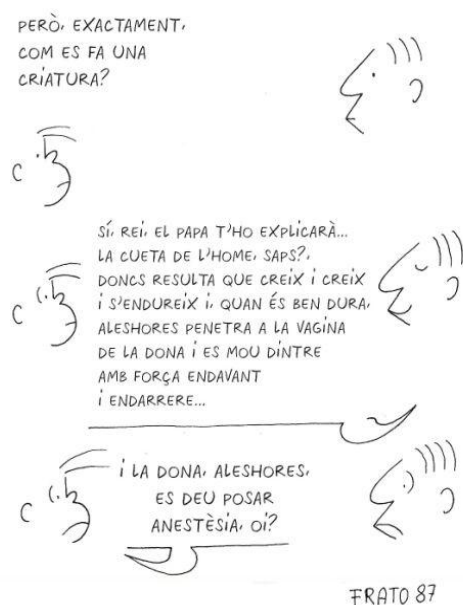 PERÒ, EXACTAMENT,
COM ES FA UNA
CRIATURA?
SÍ, REI, EL PAPA T'HO EXPLICARÀ...
LA CUETA DE L'HOME, SAPS?,
DONCS RESULTA QUE CREIX I CREIX
I S'ENDUREIX I, QUAN ÉS BEN DURA,
ALESHORES PENETRA A LA VAGINA
DE LA DONA I ES MOU DINTRE
AMB FORÇA ENDAVANT
I ENDARRERE...
I LA DONA, ALESHORES,
ES DEU POSAR
ANESTÈSIA, OI?
FRATO 87